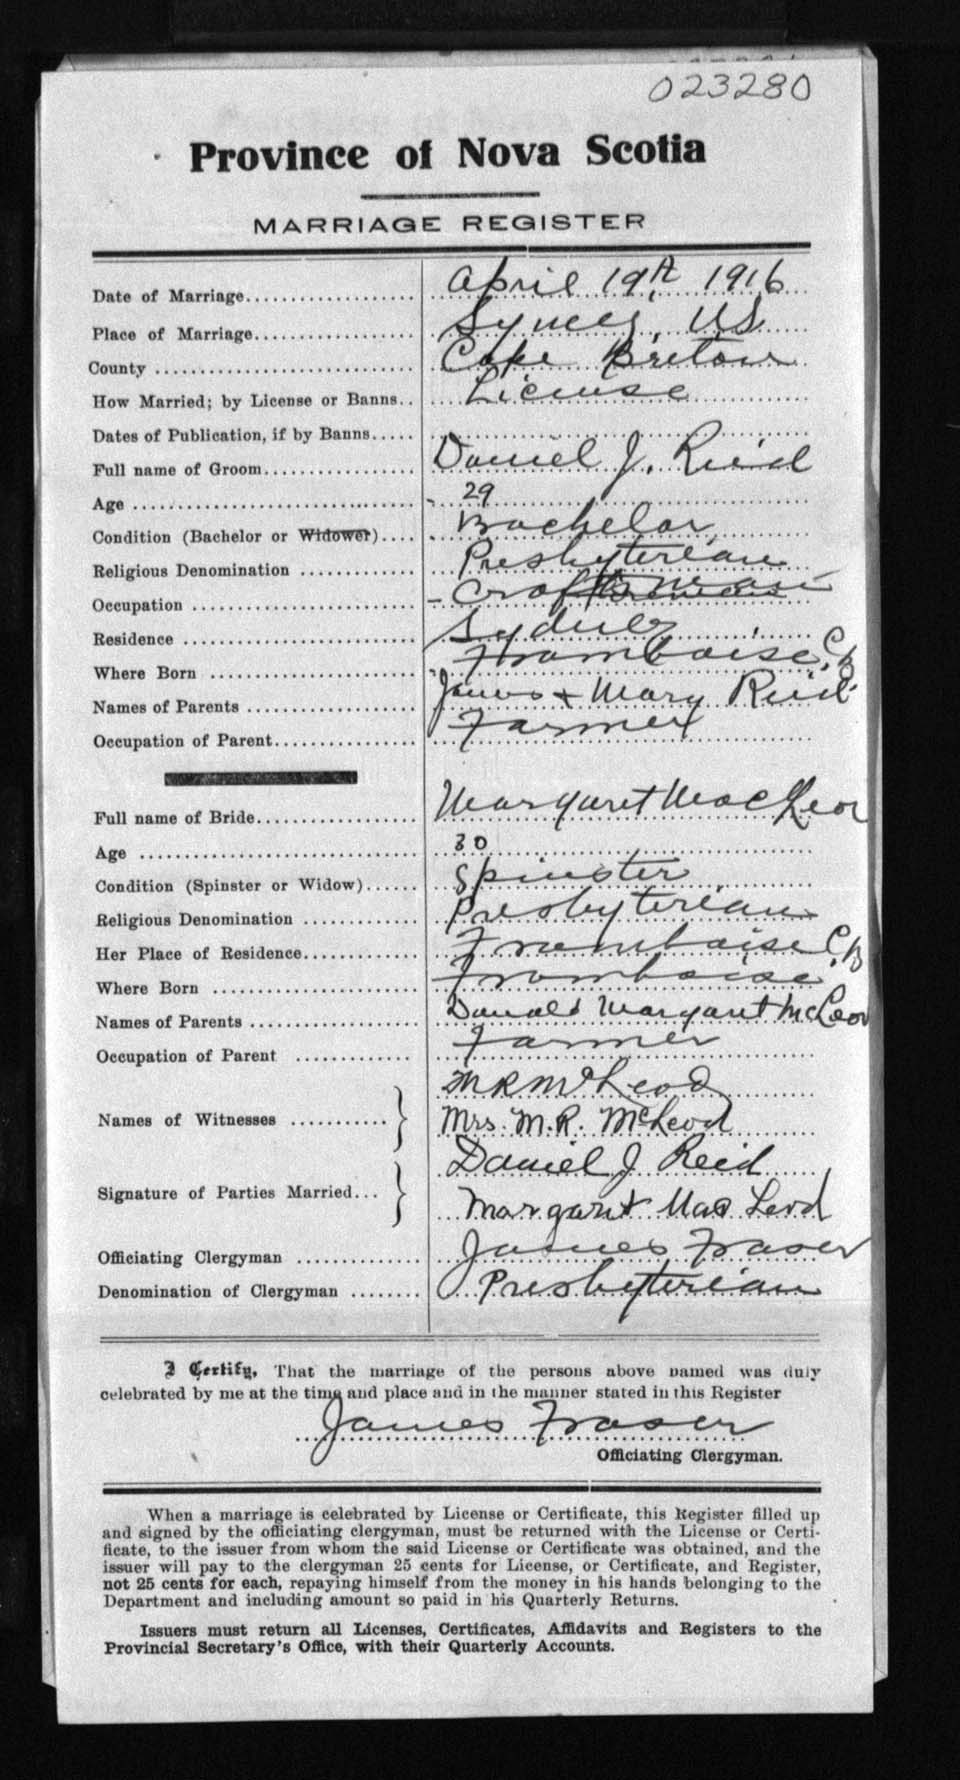 023280
Province of Nova Scotia
MARRIAGE REGISTER
Date of Marriage.................... April 19th 1916
Place of Marriage................... Sydney, NS
County .............................. Cape Breton
How Married; by License or Banns.. License
Dates of Publication, if by Banns.....
Full name of Groom.................. Daniel J. Reid
Age ................................. 29
Condition (Bachelor or Widower).... Bachelor
Religious Denomination ............. Presbyterian
Occupation .......................... Craftsman
Residence ........................... Sydney
Where Born ......................... Framboise, C.B
Names of Parents ................... James + Mary Reid
Occupation of Parent................. Farmer
Full name of Bride................... Margaret MacLeod
Age ................................. 30
Condition (Spinster or Widow)...... Spinster
Religious Denomination ............. Presbyterian
Her Place of Residence............. Framboise C.B
Where Born ......................... Framboise
Names of Parents ................... Donald Margaret McLeod
Occupation of Parent .............. Farmer
Names of Witnesses ........... } M R McLeod
Mrs. M.R. McLeod
Signature of Parties Married... } Daniel J Reid
Margaret MacLeod
Officiating Clergyman .............. James Fraser
Denomination of Clergyman ........ Presbyterian
I Certify, That the marriage of the persons above named was duly
celebrated by me at the time and place and in the manner stated in this Register
James Fraser
Officiating Clergyman.
When a marriage is celebrated by License or Certificate, this Register filled up
and signed by the officiating clergyman, must be returned with the License or Certi-
ficate, to the issuer from whom the said License or Certificate was obtained, and the
issuer will pay to the clergyman 25 cents for License, or Certificate, and Register,
not 25 cents for each, repaying himself from the money in his hands belonging to the
Department and including amount so paid in his Quarterly Returns.
Issuers must return all Licenses, Certificates, Affidavits and Registers to the
Provincial Secretary's Office, with their Quarterly Accounts.